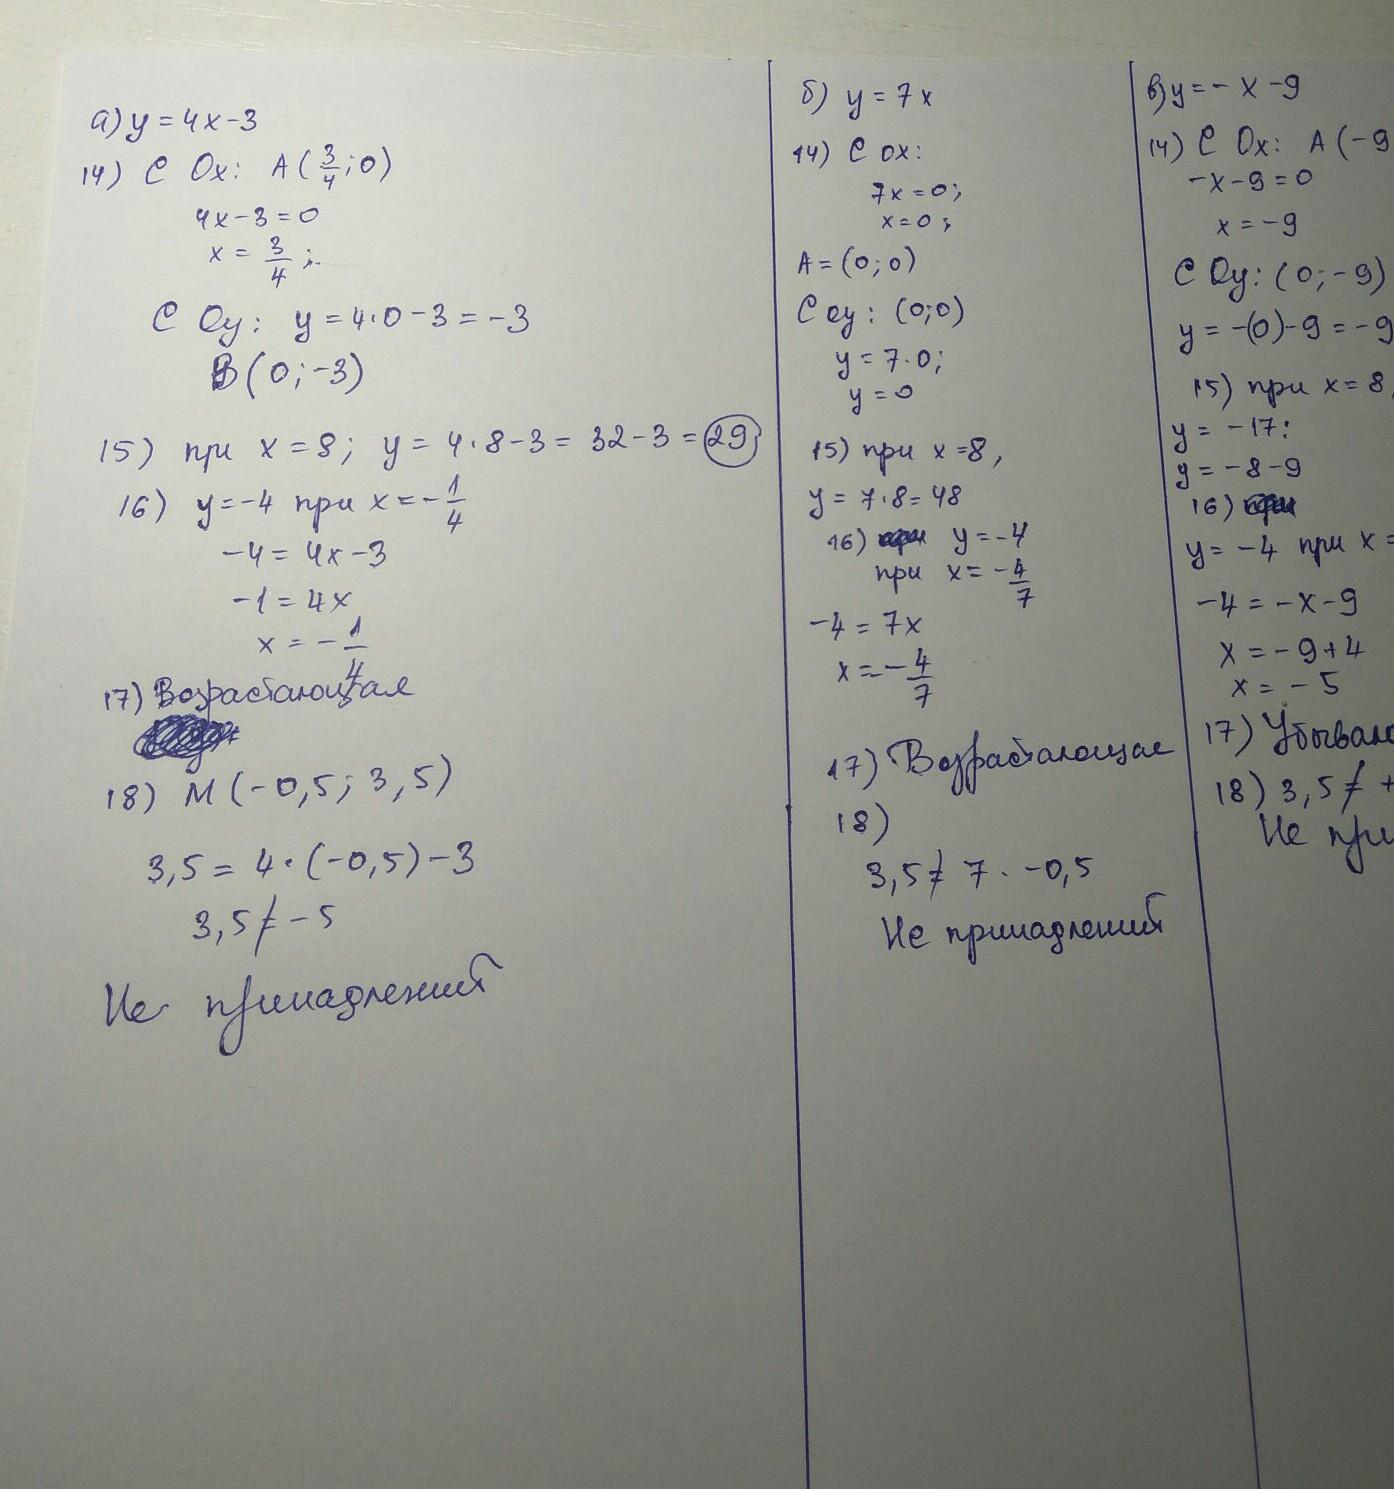 а) y = 4x - 3
14) С Ox: A (3/4; 0)
4x - 3 = 0
x = 3/4;
С Oy: y = 4·0 - 3 = -3
B (0; -3)
15) при x = 8; y = 4·8 - 3 = 32 - 3 = 29
16) y = -4 при x = -1/4
-4 = 4x - 3
-1 = 4x
x = -1/4
17) Возрастающая
18) M (-0,5; 3,5)
3,5 = 4·(-0,5) - 3
3,5 ≠ -5
Не принадлежит
б) y = 7x
14) С ox:
7x = 0;
x = 0;
A = (0; 0)
С oy: (0;0)
y = 7·0;
y = 0
15) при x = 8,
y = 7·8 = 48
16) y = -4
при x = -4/7
-4 = 7x
x = -4/7
17) Возрастающая
18)
3,5 ≠ 7 · -0,5
Не принадлежит
в) y = - x - 9
14) С Ox: A (-9
-x - 9 = 0
x = -9
С Oy: (0; -9)
y = -(0) - 9 = -9
15) при x = 8,
y = -17:
y = -8 - 9
16)
y = -4 при x =
-4 = -x - 9
x = -9 + 4
x = -5
17) Убываю
18) 3,5 ≠ +
Не при